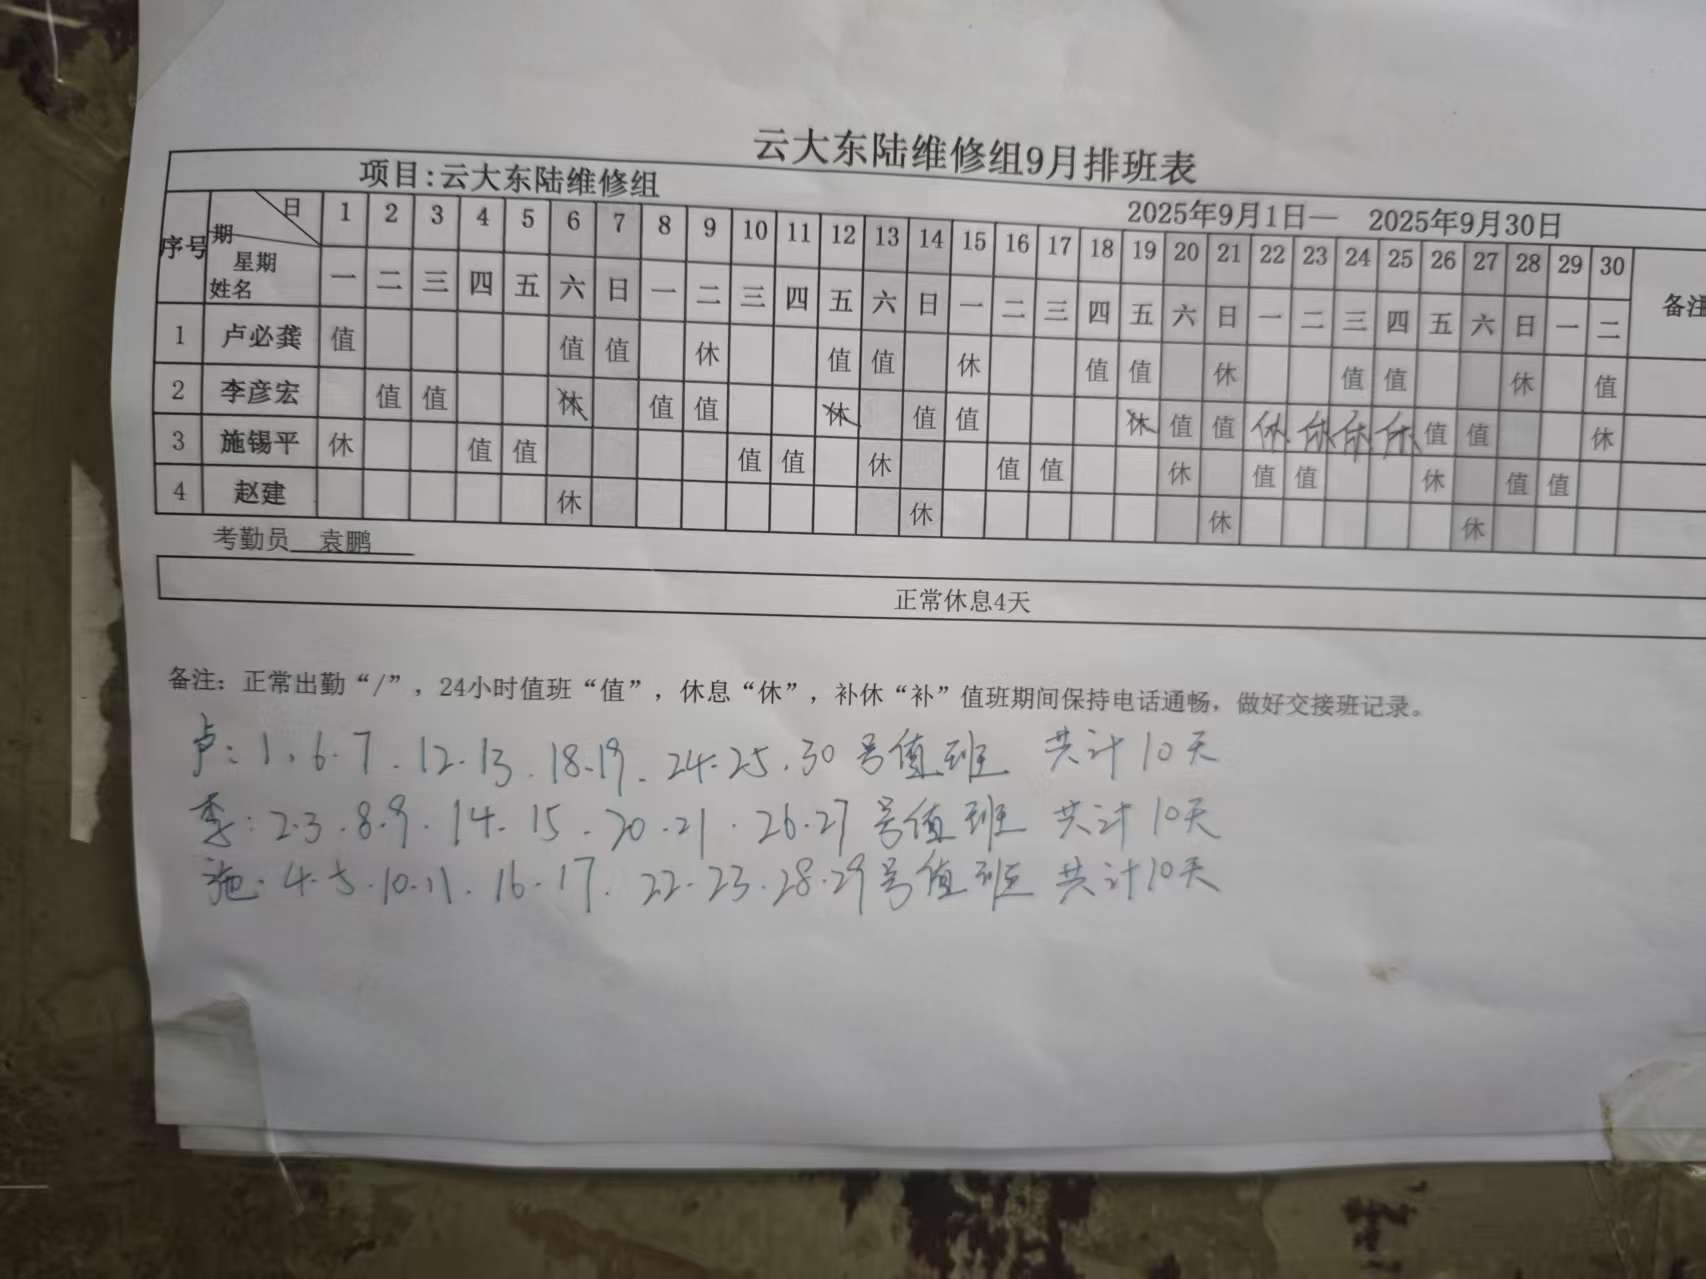 云大东陆维修组9月排班表
项目:云大东陆维修组 2025年9月1日— 2025年9月30日
序号 日期 星期 姓名 1 2 3 4 5 6 7 8 9 10 11 12 13 14 15 16 17 18 19 20 21 22 23 24 25 26 27 28 29 30 备注
一 二 三 四 五 六 日 一 二 三 四 五 六 日 一 二 三 四 五 六 日 一 二 三 四 五 六 日 一 二
1 卢必龚 值 值 值 休 值 值 休 值 值 休 值 值 休 值
2 李彦宏 值 值 休 值 值 休 值 值 休 值 值 休 休 休 休 值 值 休
3 施锡平 休 值 值 值 值 休 值 值 休 值 值 休 值 值
4 赵建 休 休 休 休
考勤员 袁鹏
正常休息4天
备注：正常出勤“/”，24小时值班“值”，休息“休”，补休“补”值班期间保持电话通畅，做好交接班记录。
卢: 1、6.7.12.13.18.19.24.25.30号值班 共计10天
李: 2.3.8.9.14.15.20.21.26.27号值班 共计10天
施.4.5.10.11.16.17.22.23.28.29号值班 共计10天